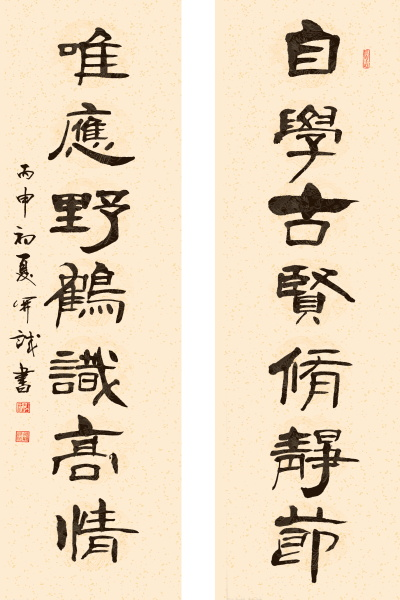 自學古賢脩靜節
唯應野鶴識高情
丙申初夏開誠書